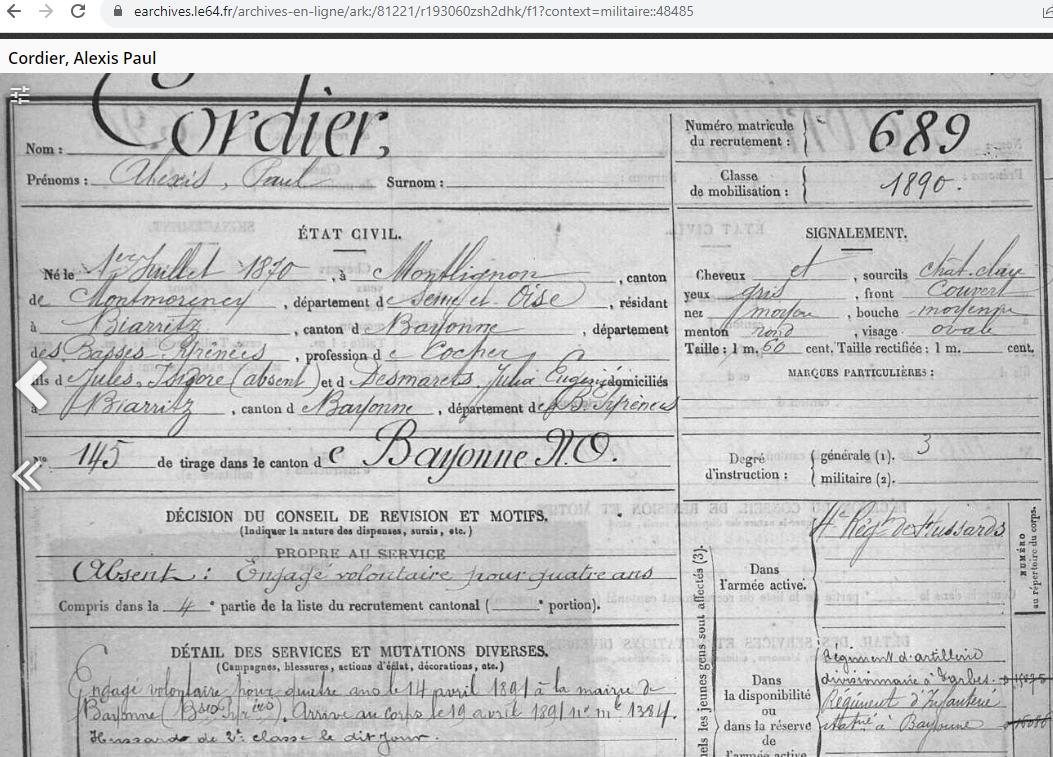 earchives.le64.fr/archives-en-ligne/ark:/81221/r193060zsh2dhk/f1?context=militaire::48485
Cordier, Alexis Paul
Nom : Cordier,
Prénoms : Alexis, Paul Surnom :
Numéro matricule du recrutement : 689
Classe de mobilisation : 1890.
ÉTAT CIVIL.
Né le 1er Juillet 1870, à Montlignon, canton
de Montmorency, département de Seine et Oise, résidant
à Biarritz, canton de Bayonne, département
des Basses Pyrénées, profession de Cocher
fils de Jules, Isidore (absent) et de Desmarets, Julia Eugénie domiciliés
à Biarritz, canton de Bayonne, département des B. Pyrénées
No 145 de tirage dans le canton de Bayonne N.O.
SIGNALEMENT.
Cheveux et, sourcils chât. clair
yeux gris, front Couvert
nez moyen, bouche moyenne
menton rond, visage ovale
Taille : 1 m. 60 cent. Taille rectifiée : 1 m. cent.
MARQUES PARTICULIÈRES :
Degré d'instruction : générale (1). 3
militaire (2).
DÉCISION DU CONSEIL DE REVISION ET MOTIFS.
(Indiquer la nature des dispenses, sursis, etc.)
PROPRE AU SERVICE
Absent : Engagé volontaire pour quatre ans
Compris dans la 4e partie de la liste du recrutement cantonal ( e portion).
DÉTAIL DES SERVICES ET MUTATIONS DIVERSES.
(Campagnes, blessures, actions d'éclat, décorations, etc.)
Engagé volontaire pour quatre ans le 14 avril 1891 à la mairie de
Bayonne (Bses Pyres). Arrivé au corps le 19 avril 1891 no mle 1384.
Hussard de 2e classe le dit jour.
nels les jeunes gens sont affectés (3).
Dans l'armée active.
4e Régt de Hussards
NUMÉRO au répertoire du corps.
Dans la disponibilité ou dans la réserve de l'armée active
Régiment d'artillerie
divisionnaire à Tarbes
Régiment d'Infanterie
à Bayonne